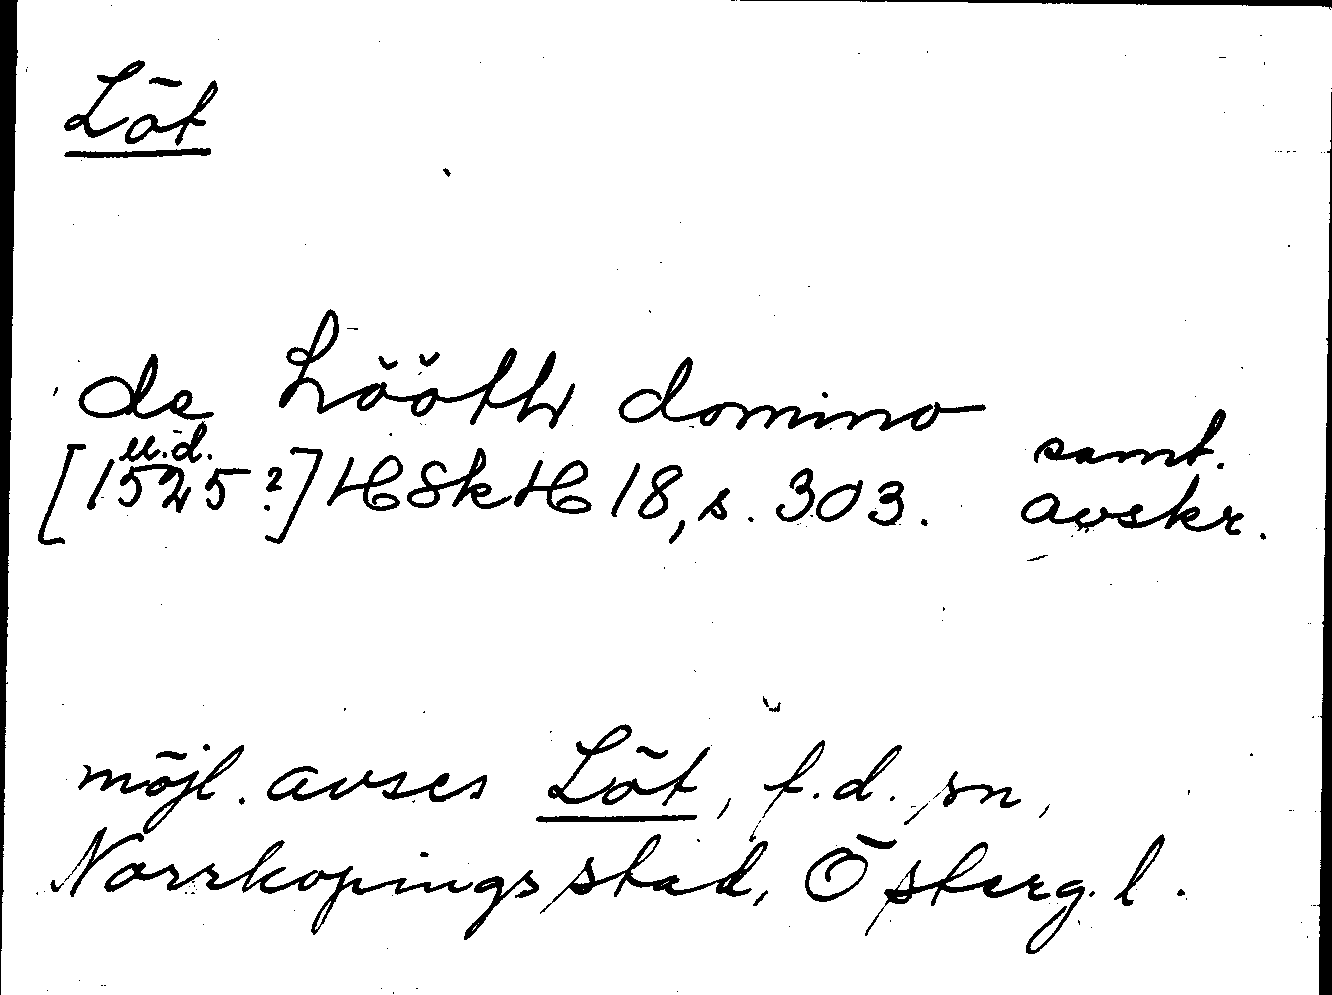 Löt
de Lööth domino
u.d.
[1525?] HSkH 18, s. 303.
samt.
avskr.
möjl. avses Löt, f.d. sn,
Norrkopings stad, Österg. l.